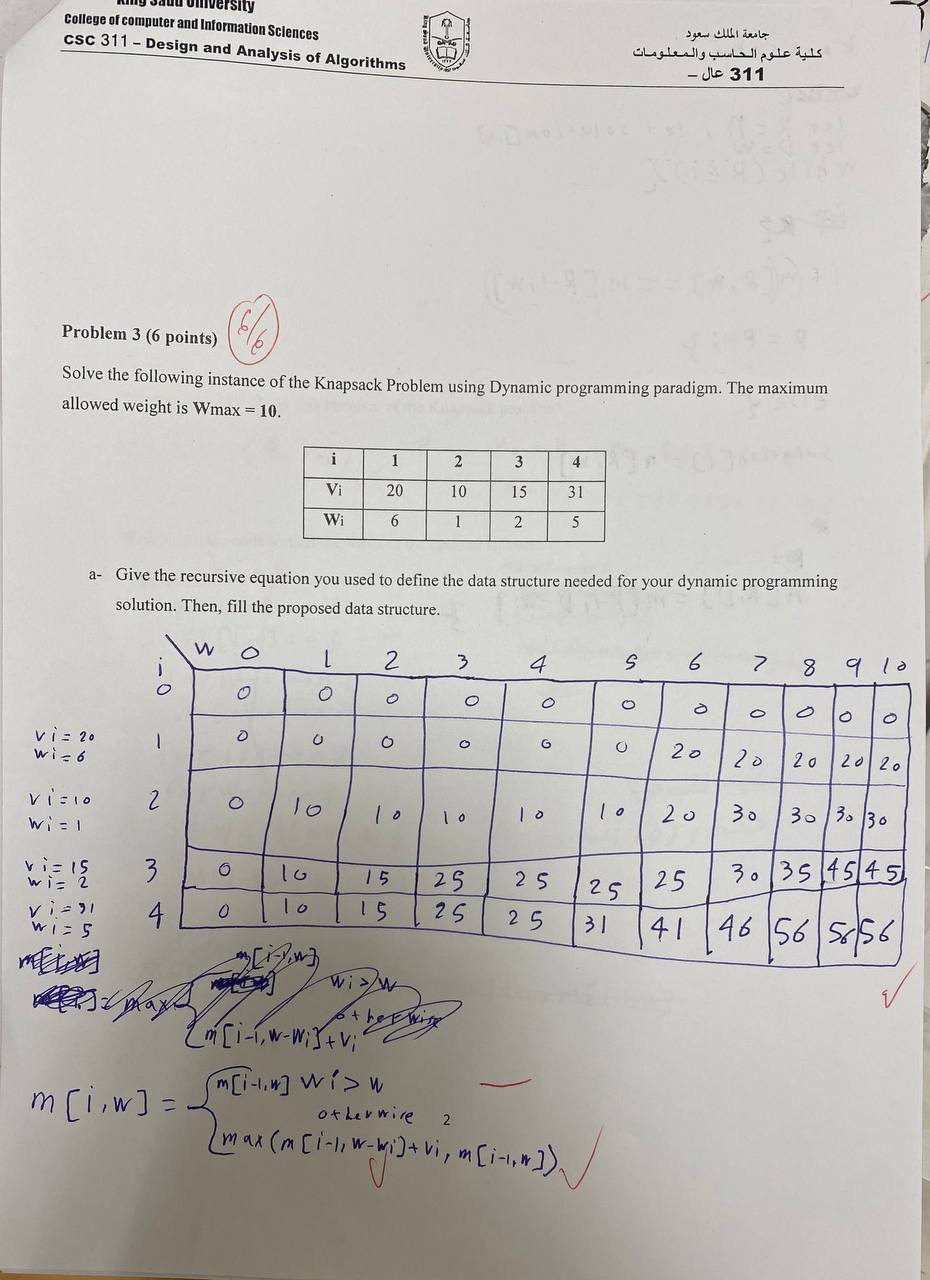 King Saud University
College of computer and Information Sciences
CSC 311 – Design and Analysis of Algorithms
جامعة الملك سعود
كلية علوم الحاسب والمعلومات
311 عال –
Problem 3 (6 points)
6/6
Solve the following instance of the Knapsack Problem using Dynamic programming paradigm. The maximum
allowed weight is Wmax = 10.
i 1 2 3 4
Vi 20 10 15 31
Wi 6 1 2 5
a- Give the recursive equation you used to define the data structure needed for your dynamic programming
solution. Then, fill the proposed data structure.
i w 0 1 2 3 4 5 6 7 8 9 10
0 0 0 0 0 0 0 0 0 0 0 0
vi=20
wi=6
1 0 0 0 0 0 0 20 20 20 20 20
vi=10
wi=1
2 0 10 10 10 10 10 20 30 30 30 30
vi=15
wi=2
3 0 10 15 25 25 25 25 30 35 45 45
vi=31
wi=5
4 0 10 15 25 25 31 41 46 56 56 56
m[i,w]
m[i-1,w] wi>w
= max
otherwire
m[i-1,w-wi]+vi
m[i-1,w] wi>w
m[i,w] =
otherwire
2
max(m[i-1,w-wi]+vi, m[i-1,w])